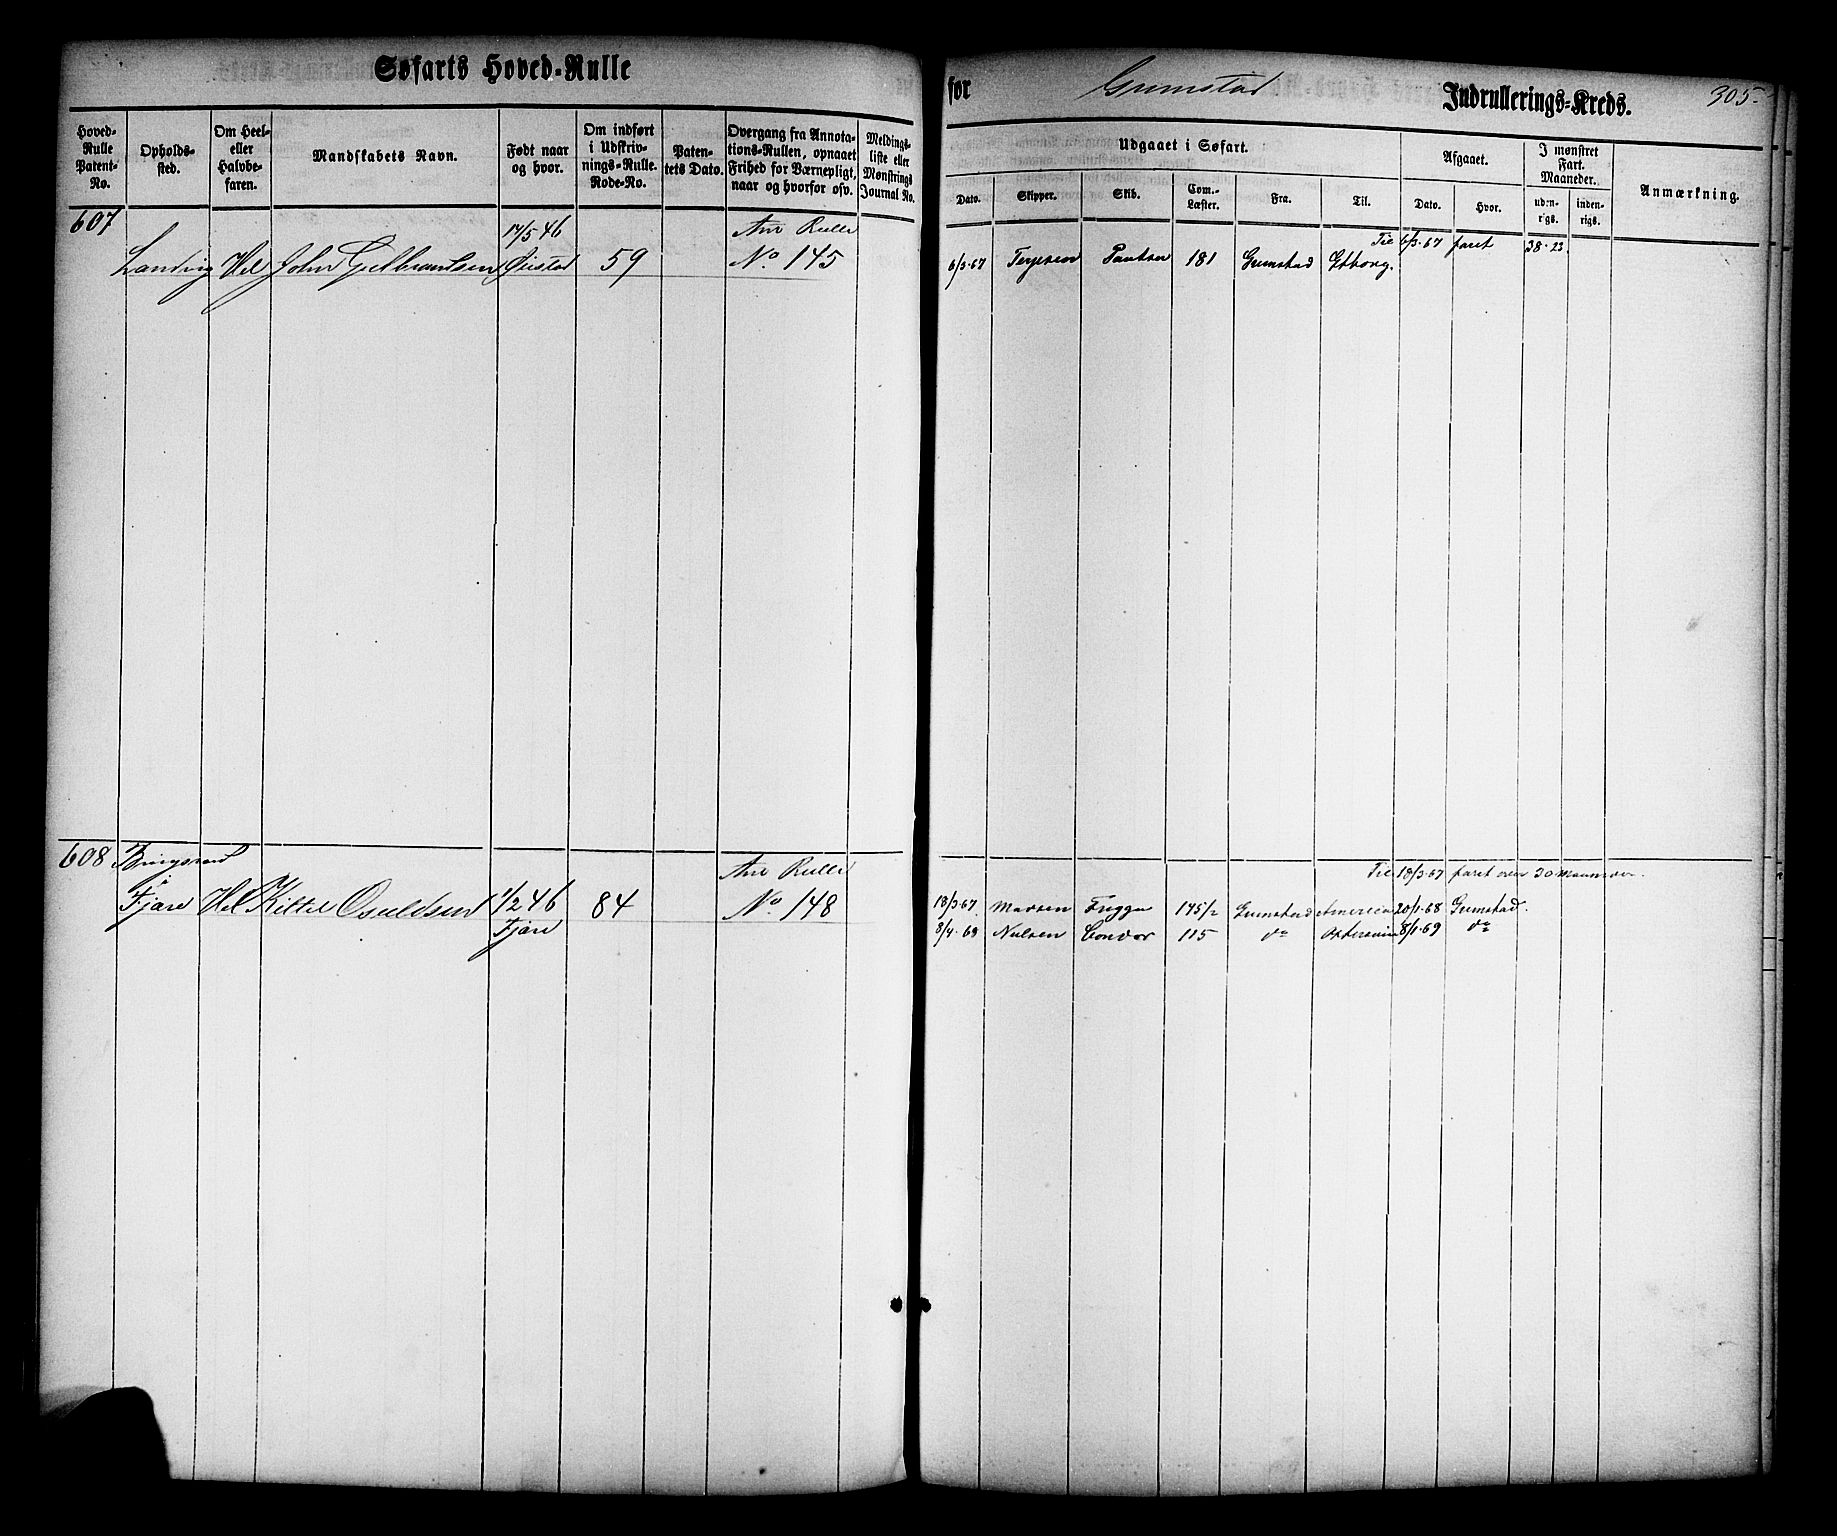 Søfarts Hoved-Rulle
for Grimstad Indrullerings-Kreds. 305.
Hoved-Rulle Patent-No.
Opholds-sted.
Om Heel- eller Halvbe-faren.
Mandskabets Navn.
Født naar og hvor.
Om indført i Udskriv-nings-Rulle. Rode-No.
Paten-tets Dato.
Overgang fra Annota-tions-Rullen, opnaaet Frihed for Værnepligt, naar og hvorfor osv.
Meldings-liste eller Mønstrings Journal No.
Udgaaet i Søfart.
Dato. Skipper. Skib. Com.-Læster. Fra. Til.
Afgaaet.
Dato. Hvor.
I mønstret Fart. Maaneder.
uden-rigs. inden-rigs.
Anmærkning.
607 17/5 46 Ann Rulle
Landvig Hel John Gjelbrantsen Øiestad 59 No 145
Til 6/3.67 faret 38.23
6/3.67 Terjesen 181 Grimstad Gtborg.
608
Ann Rulle
i
Fjære Hel Kittel Osuldsen 1/2 46 84 No 148
Fjære
Til 18/3.67 faret over 30 Maaneder.
18/3.67. Marsen Frigga 175 1/2 Grimstad America 20/1.68 Grimstad.
8/4.68 Nielsen Condor 115 do 8/1.69 do